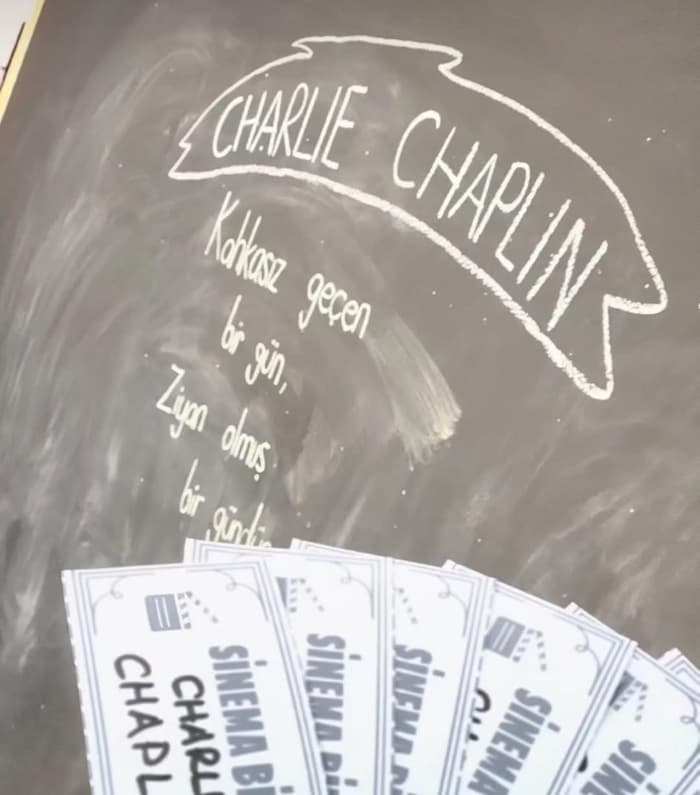 CHARLIE CHAPLIN
Kahkasız geçen
bir gün,
Ziyan olmuş
bir gündür
SİNEMA Bİ
CHARL
CHAPL
SİNEMA
SİNEMA
SİNEMA
SİNEMA